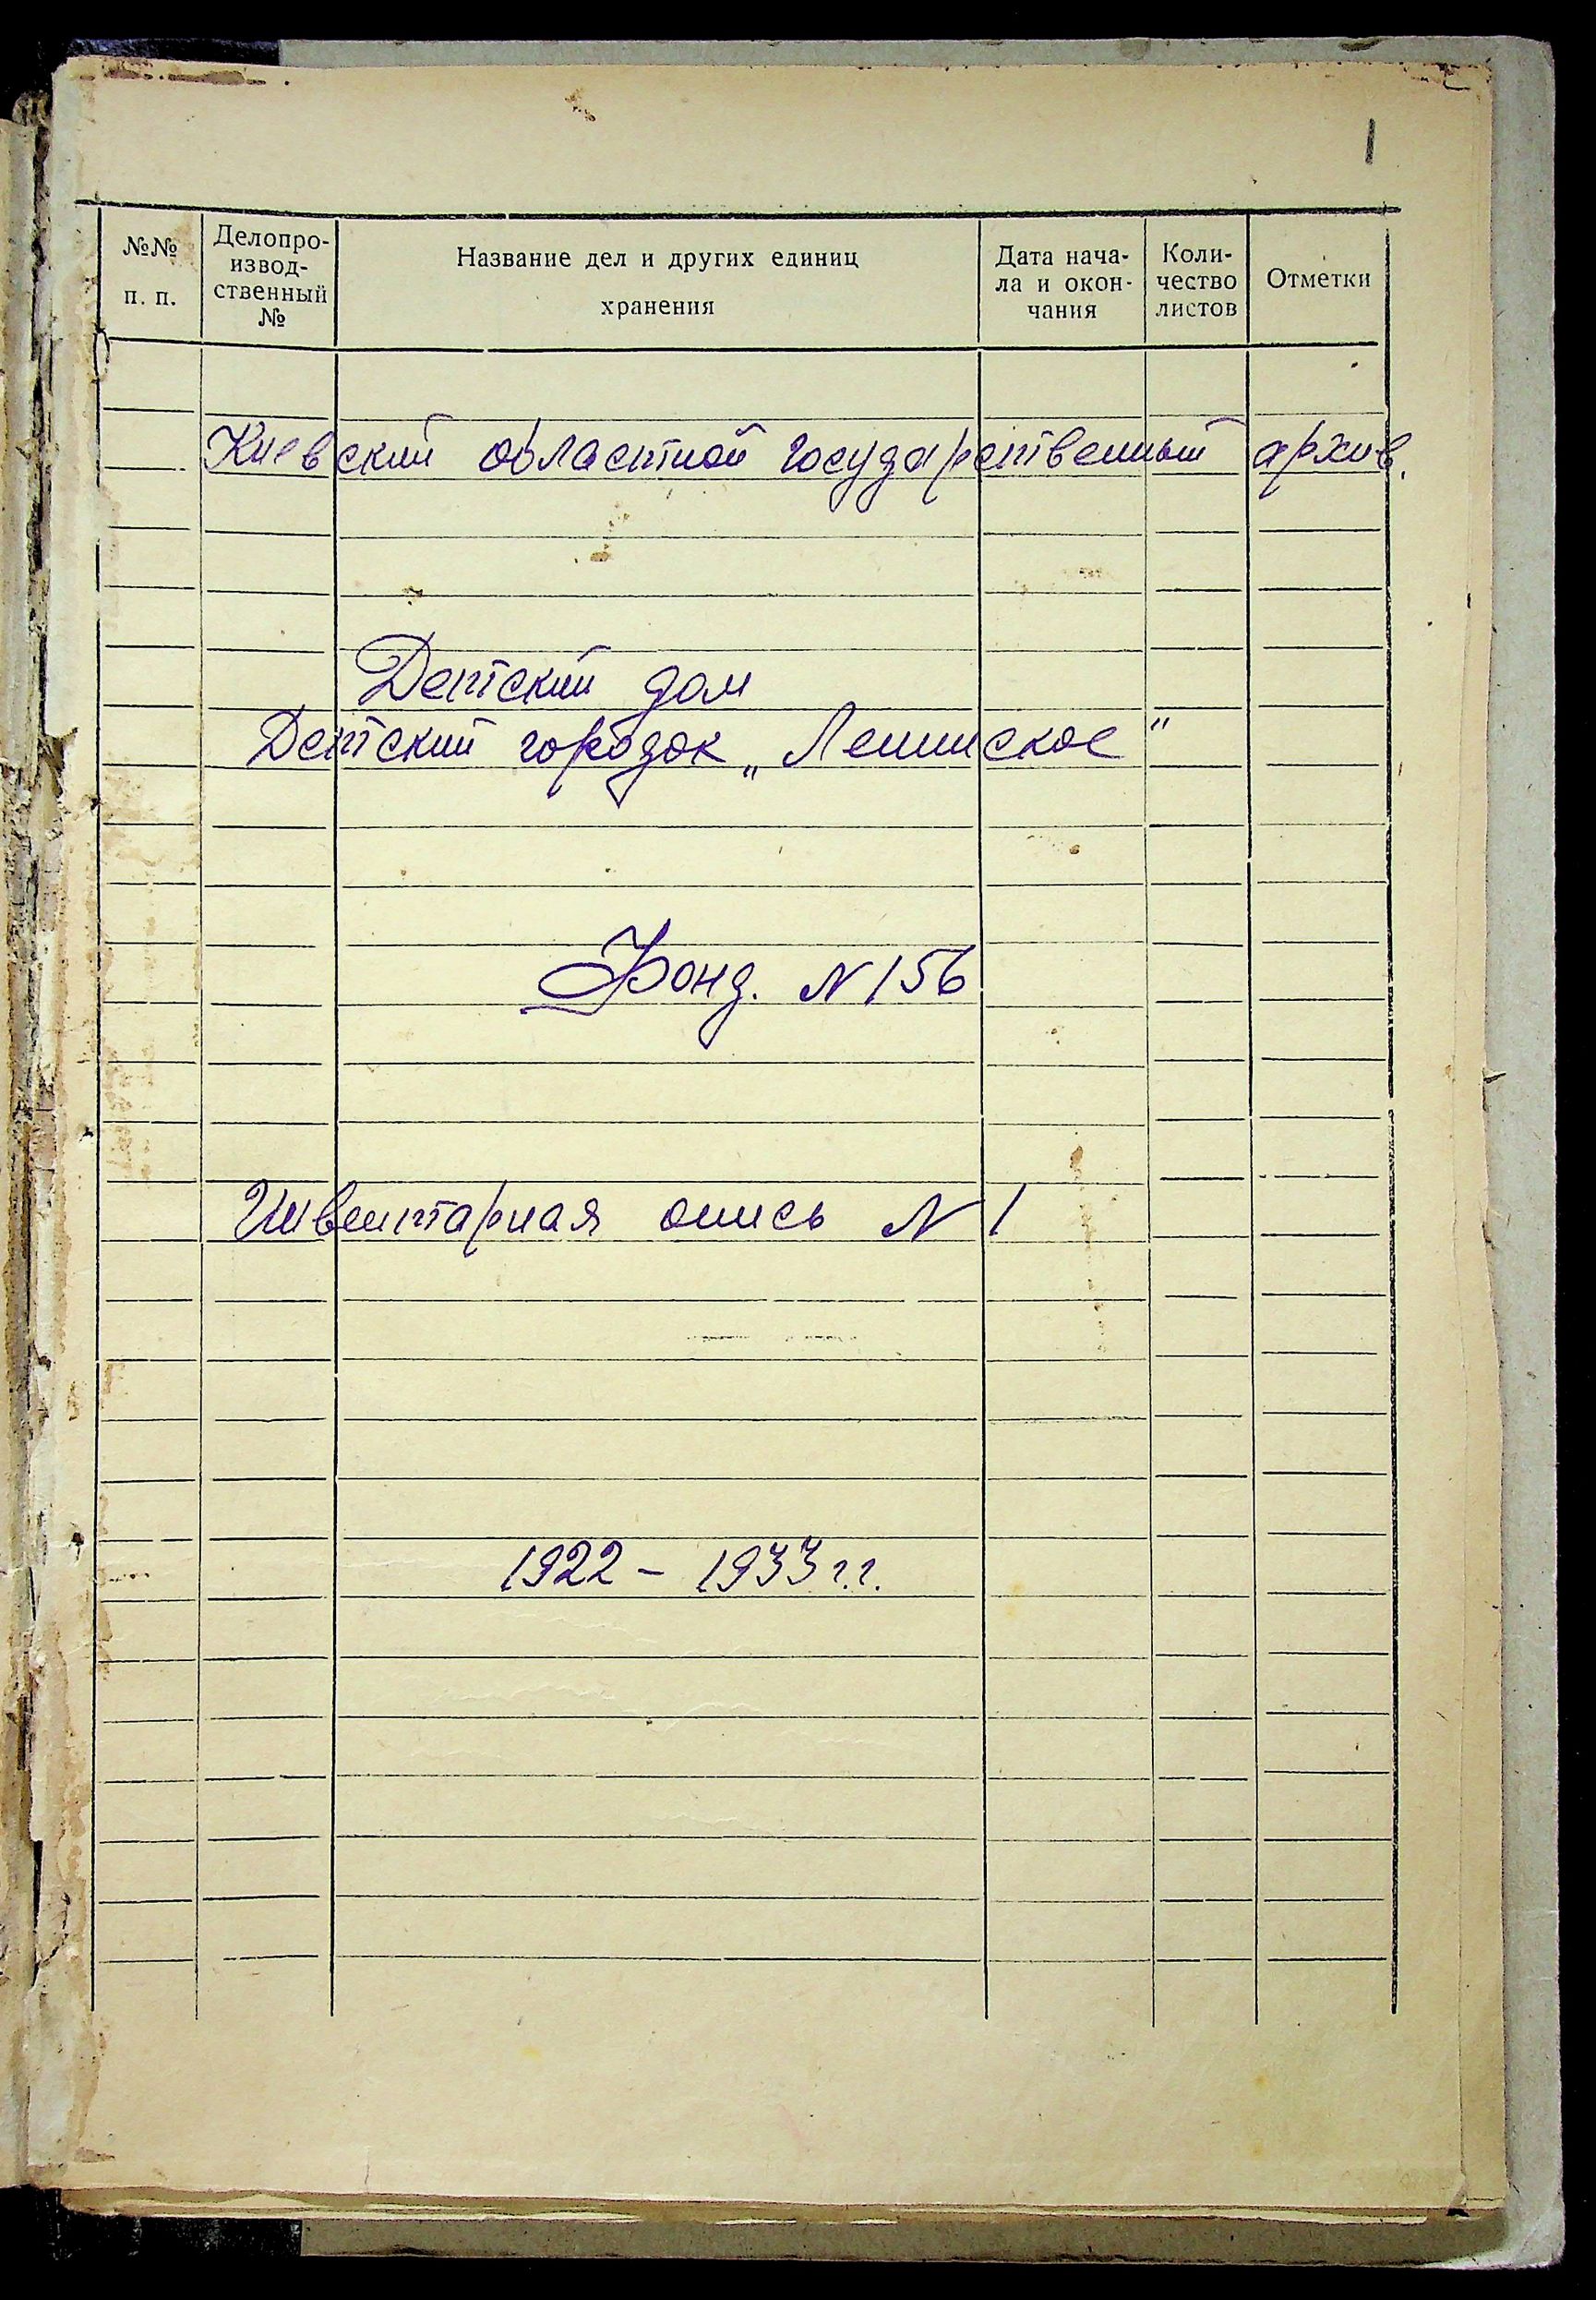 1
№№ п. п.
Делопро-
извод-
ственный
№
Название дел и других единиц
хранения
Дата нача-
ла и окон-
чания
Коли-
чество
листов
Отметки
Киевский областной государственный архив.
Детский дом
Детский городок „Ленинское"
Фонд. N 156
Инвентарная опись N 1
1922 - 1933 г.г.